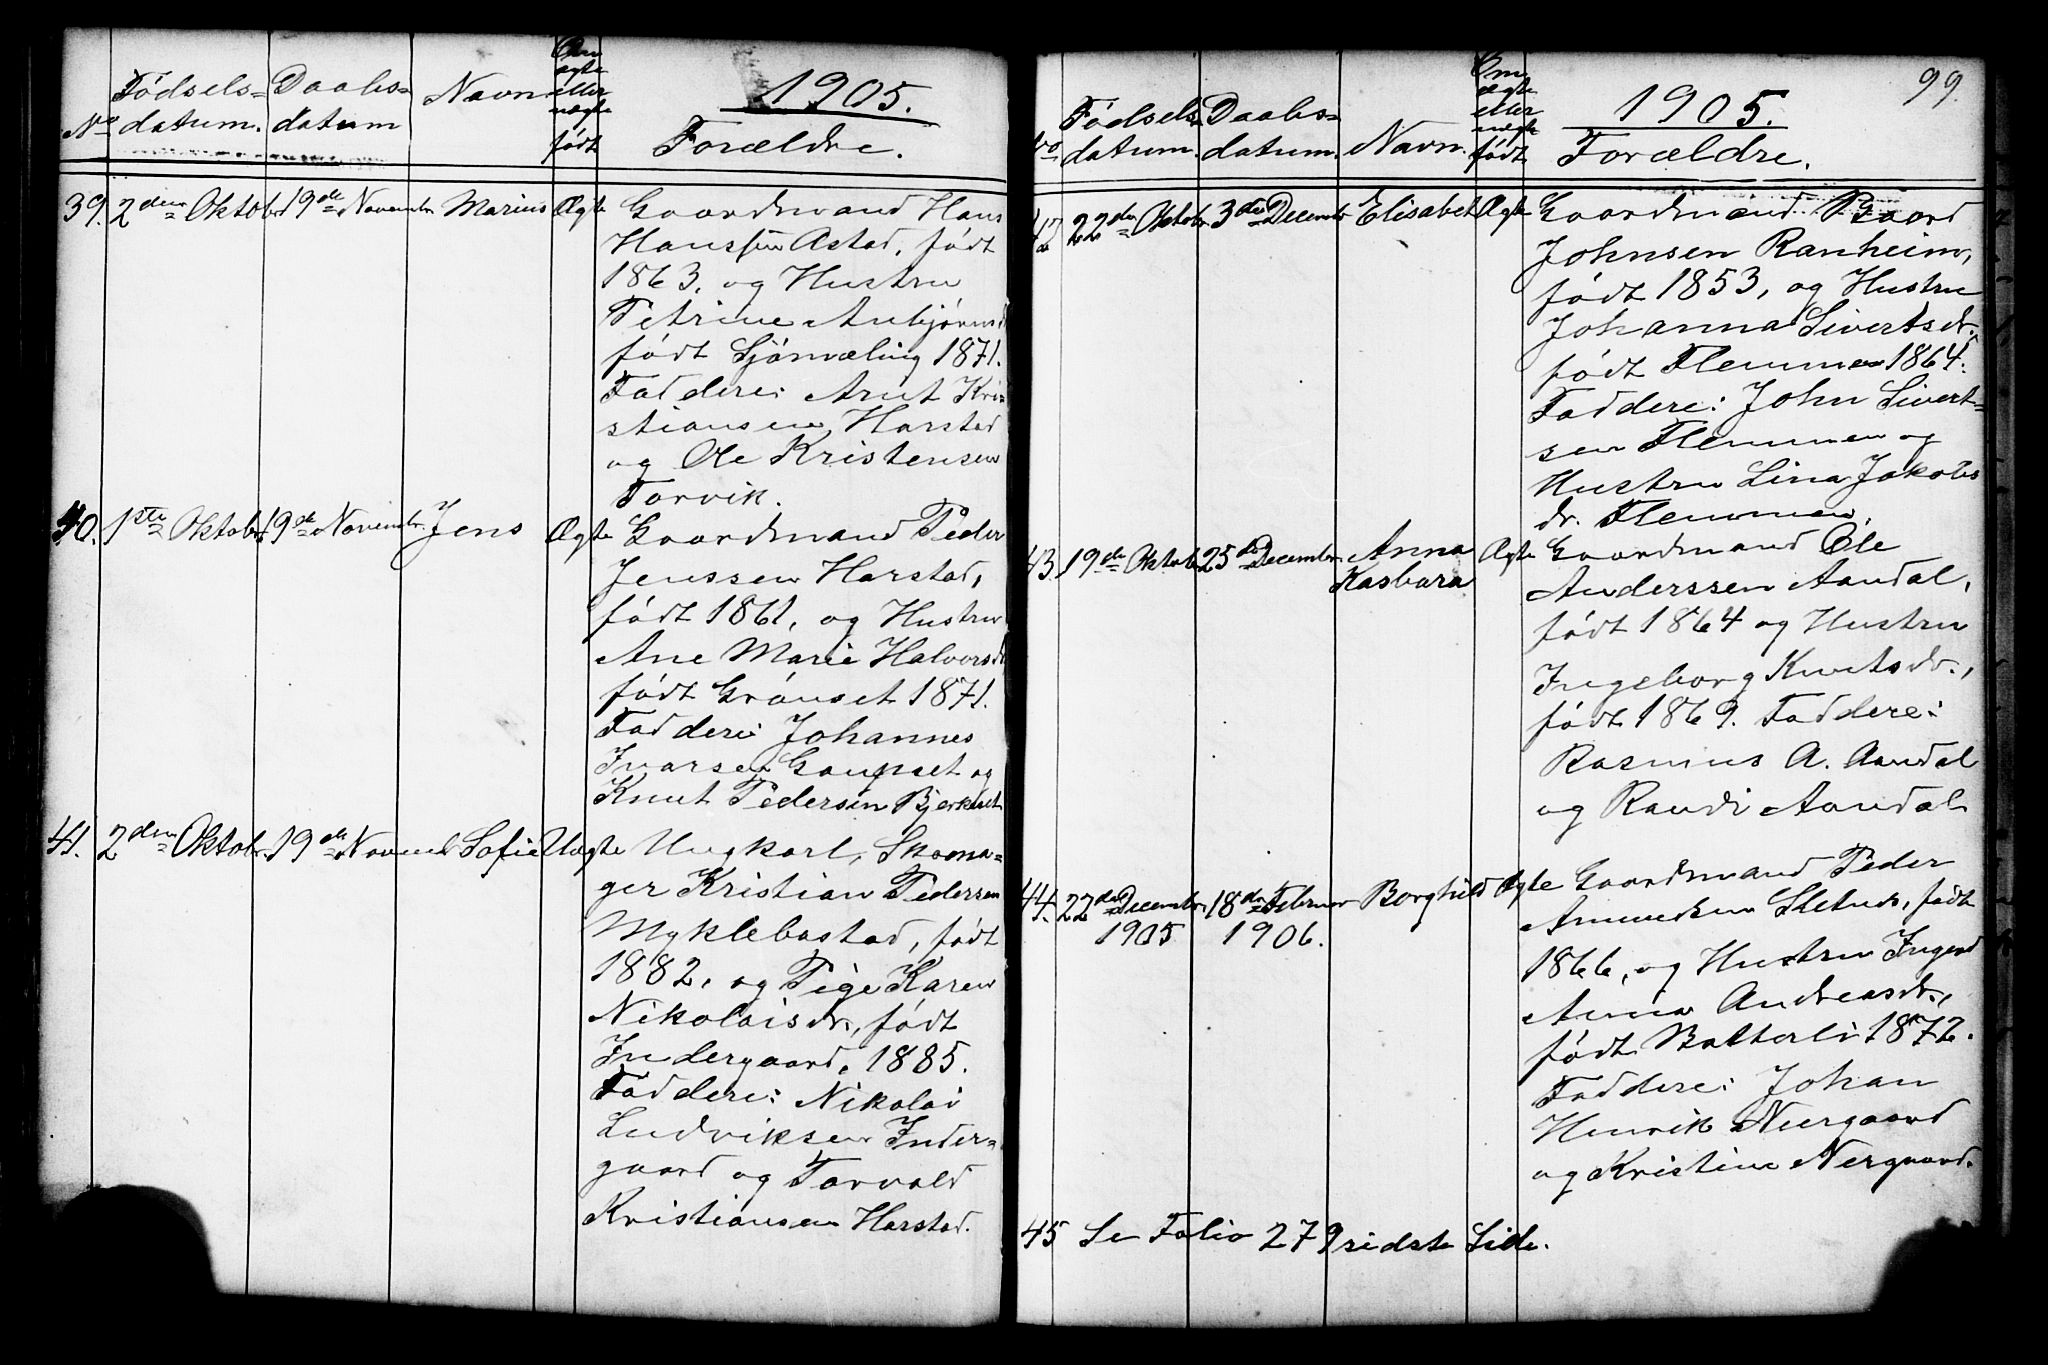 1905.
No
Födsels-
datum.
Daabs-
datum
Navn
Om
ægte
eller
uægte
födt
Forældre.
39. 2den Oktobr. 19de Novembr. Marius Ægte Gaardmand Hans
Hanssen Astad, födt
1863, og Hustru
Petrine Anbjörnsd
födt Sjömæling 1871.
Faddere: Arnt Kri-
stiansen Harstad
og Ole Kristensen
Torvik.
40. 1ste Oktobr. 19de Novembr. Jens Ægte Gaardmand Peder
Jenssen Harstad,
födt 1861, og Hustru
Ane Marie Halvorsd
födt Grönset 1871.
Faddere: Johannes
Ivarsen Gaupset og
Knut Pedersen Bjerkeset
41. 2den Oktobr. 19de Novemb Sofie Uægte Ungkarl, Skoma-
ger Kristian Pedersen
Myklebostad, födt
1882, og Pige Karen
Nikolaisdr., födt
Indergaard, 1885.
Faddere: Nikolai
Ludviksen Inder-
gaard og Torvald
Kristiansen Harstad.
99.
1905.
No
Födsels-
datum.
Daabs-
datum.
Navn.
Om
ægte
eller
uægte
födt
Forældre.
42 22den Oktobr. 3die Decembr Elisabet Ægte Gaardmand Baard
Johnsen Ranheim,
födt 1853, og Hustru
Johanna Sivertsdr.,
födt Flemmen 1864.
Faddere: John Sivert-
sen Flemmen og
Hustru Lina Jakobs
dr. Flemmen.
43. 19de Oktobr. 25de Decembr. Anna Ægte Gaardmand Ole
Kasbara
Anderssen Aandal,
födt 1864 og Hustru
Ingeborg Knutsdr.,
födt 1869. Faddere:
Rasmus A. Aandal
og Randi Aandal
44. 22de Decembr. 18de Februar Borghild Ægte Gaardmand Peder
1905 1906.
Amundsen Sletnes, födt
1866, og Hustru
Anna Andreasdr.,
födt Batterli 1872.
Faddere: Johan
Henrik Neergaard
og Kristine Nergaard.
45 Se Folio 279 sidste Side.